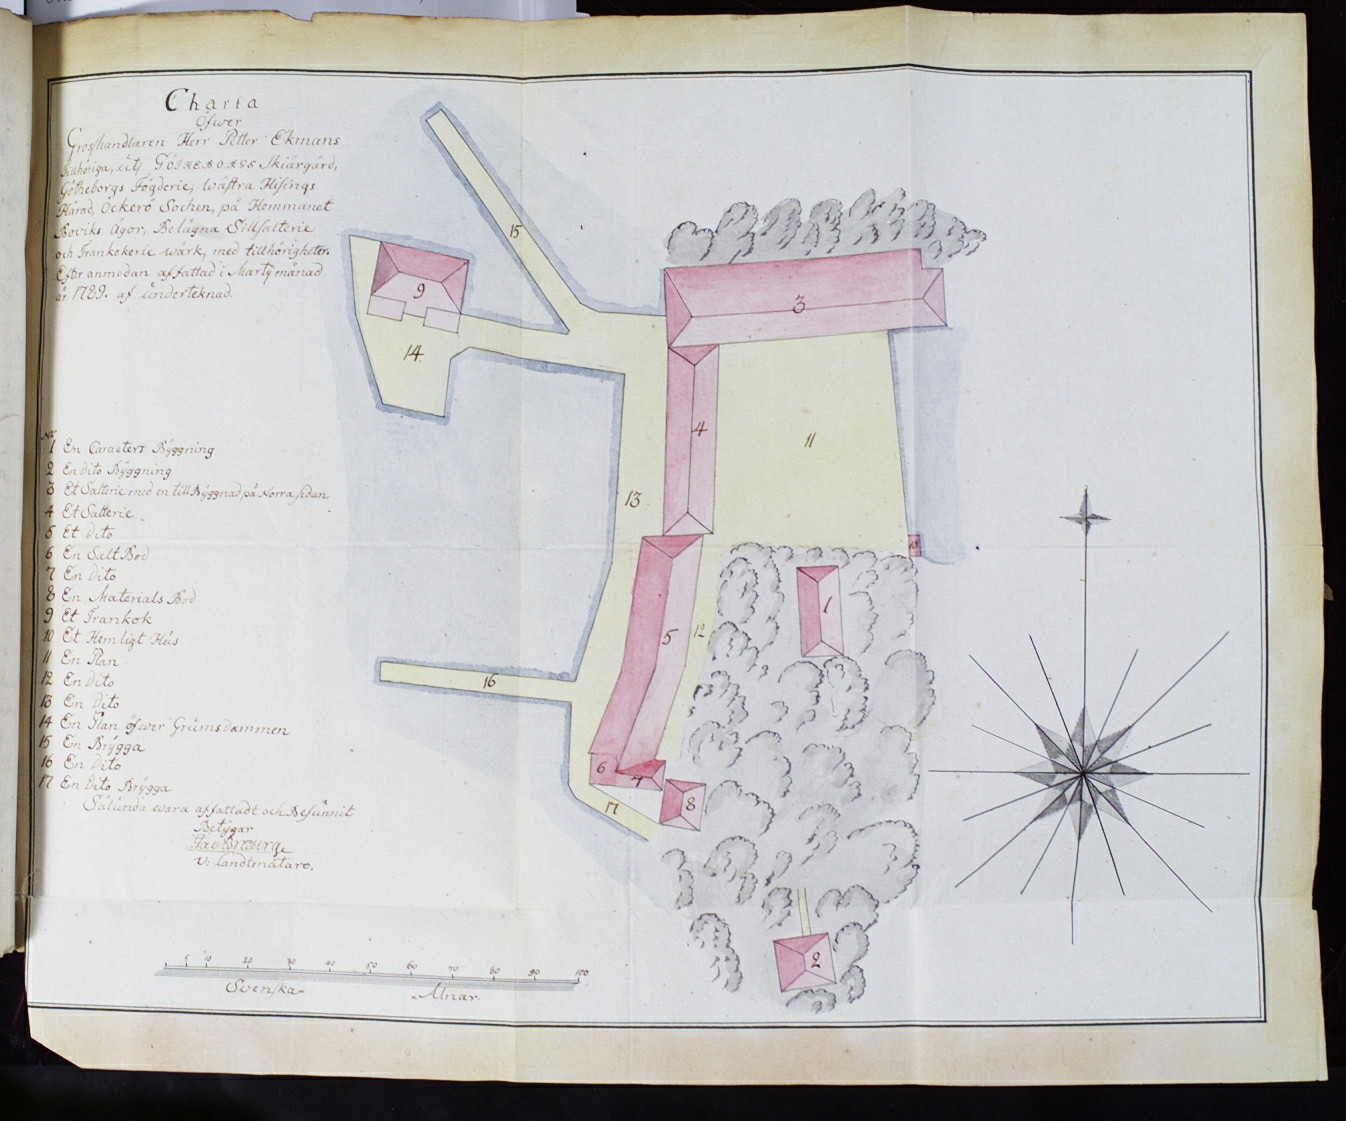 Charta
öfwer
Grosshandlaren Herr Petter Ekmans
tillhöriga, uti Götheborgs Skiärgård,
Götheborgs Fögderie, wästra Hisings
Härad, Öckerö Sochen, på Hemmanet
Boviks Ägor, Belägna Sillsalterie
och Trankokerie wärk, med tillhörigheter.
Efter anmodan affattad i Marty månad
år 1789. af underteknad.
No
1 En Caracters Byggning
2 En dito Byggning
3 Et Salterie med en till Byggnad på Norra sidan
4 Et Salterie
5 Et dito
6 En Salt Bod
7 En dito
8 En Materials Bod
9 Et Trankok
10 Et Hemligt Hus
11 En Plan
12 En dito
13 En dito
14 En Plan öfwer Grumsdammen
15 En Brygga
16 En dito
17 En dito Brygga
Sålunda wara affattadt och Befunnit
Betygar
V: Landtmätare.
15
9
3
14
4
11
13
10
1
5
12
16
6
7
8
17
2
5 10 20 30 40 50 60 70 80 90 100
Svenska Alnar.